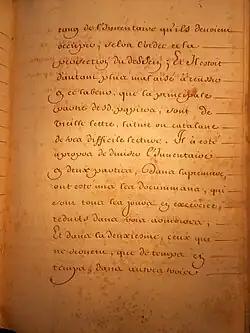 rang de l'Inventaire qu'ils devoient
occuper, selon l'ordre et la
du dessein; Et Il estoit
d'autant plus mal aisé à
ce labeur, que la principale
partie de sd. papiers, sont de
vieille lettre, latine ou catalane
de tres difficile lecture. Il a esté
à propos de diviser l'Inventaire
en deux parties, dans la premiere,
ont esté mis les documens, qui
sont tous les jours en exercice,
reduits dans
Et dans la deuxiesme, ceux qui
ne servent, que de temps en
temps, dans